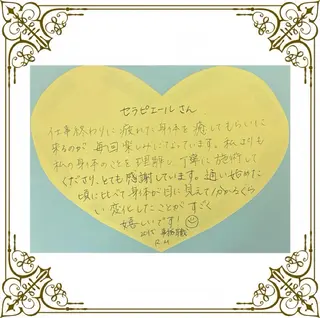 セラピエールさん
仕事終わりに疲れた身体を癒してもらいに
来るのが毎回楽しみになっています。私よりも
私の身体のことを理解し、丁寧に施術して
くださり、とても感謝しています。通い始めた
頃に比べて身体が目に見えて分かるくら
い変化したことがすごく
嬉しいです!